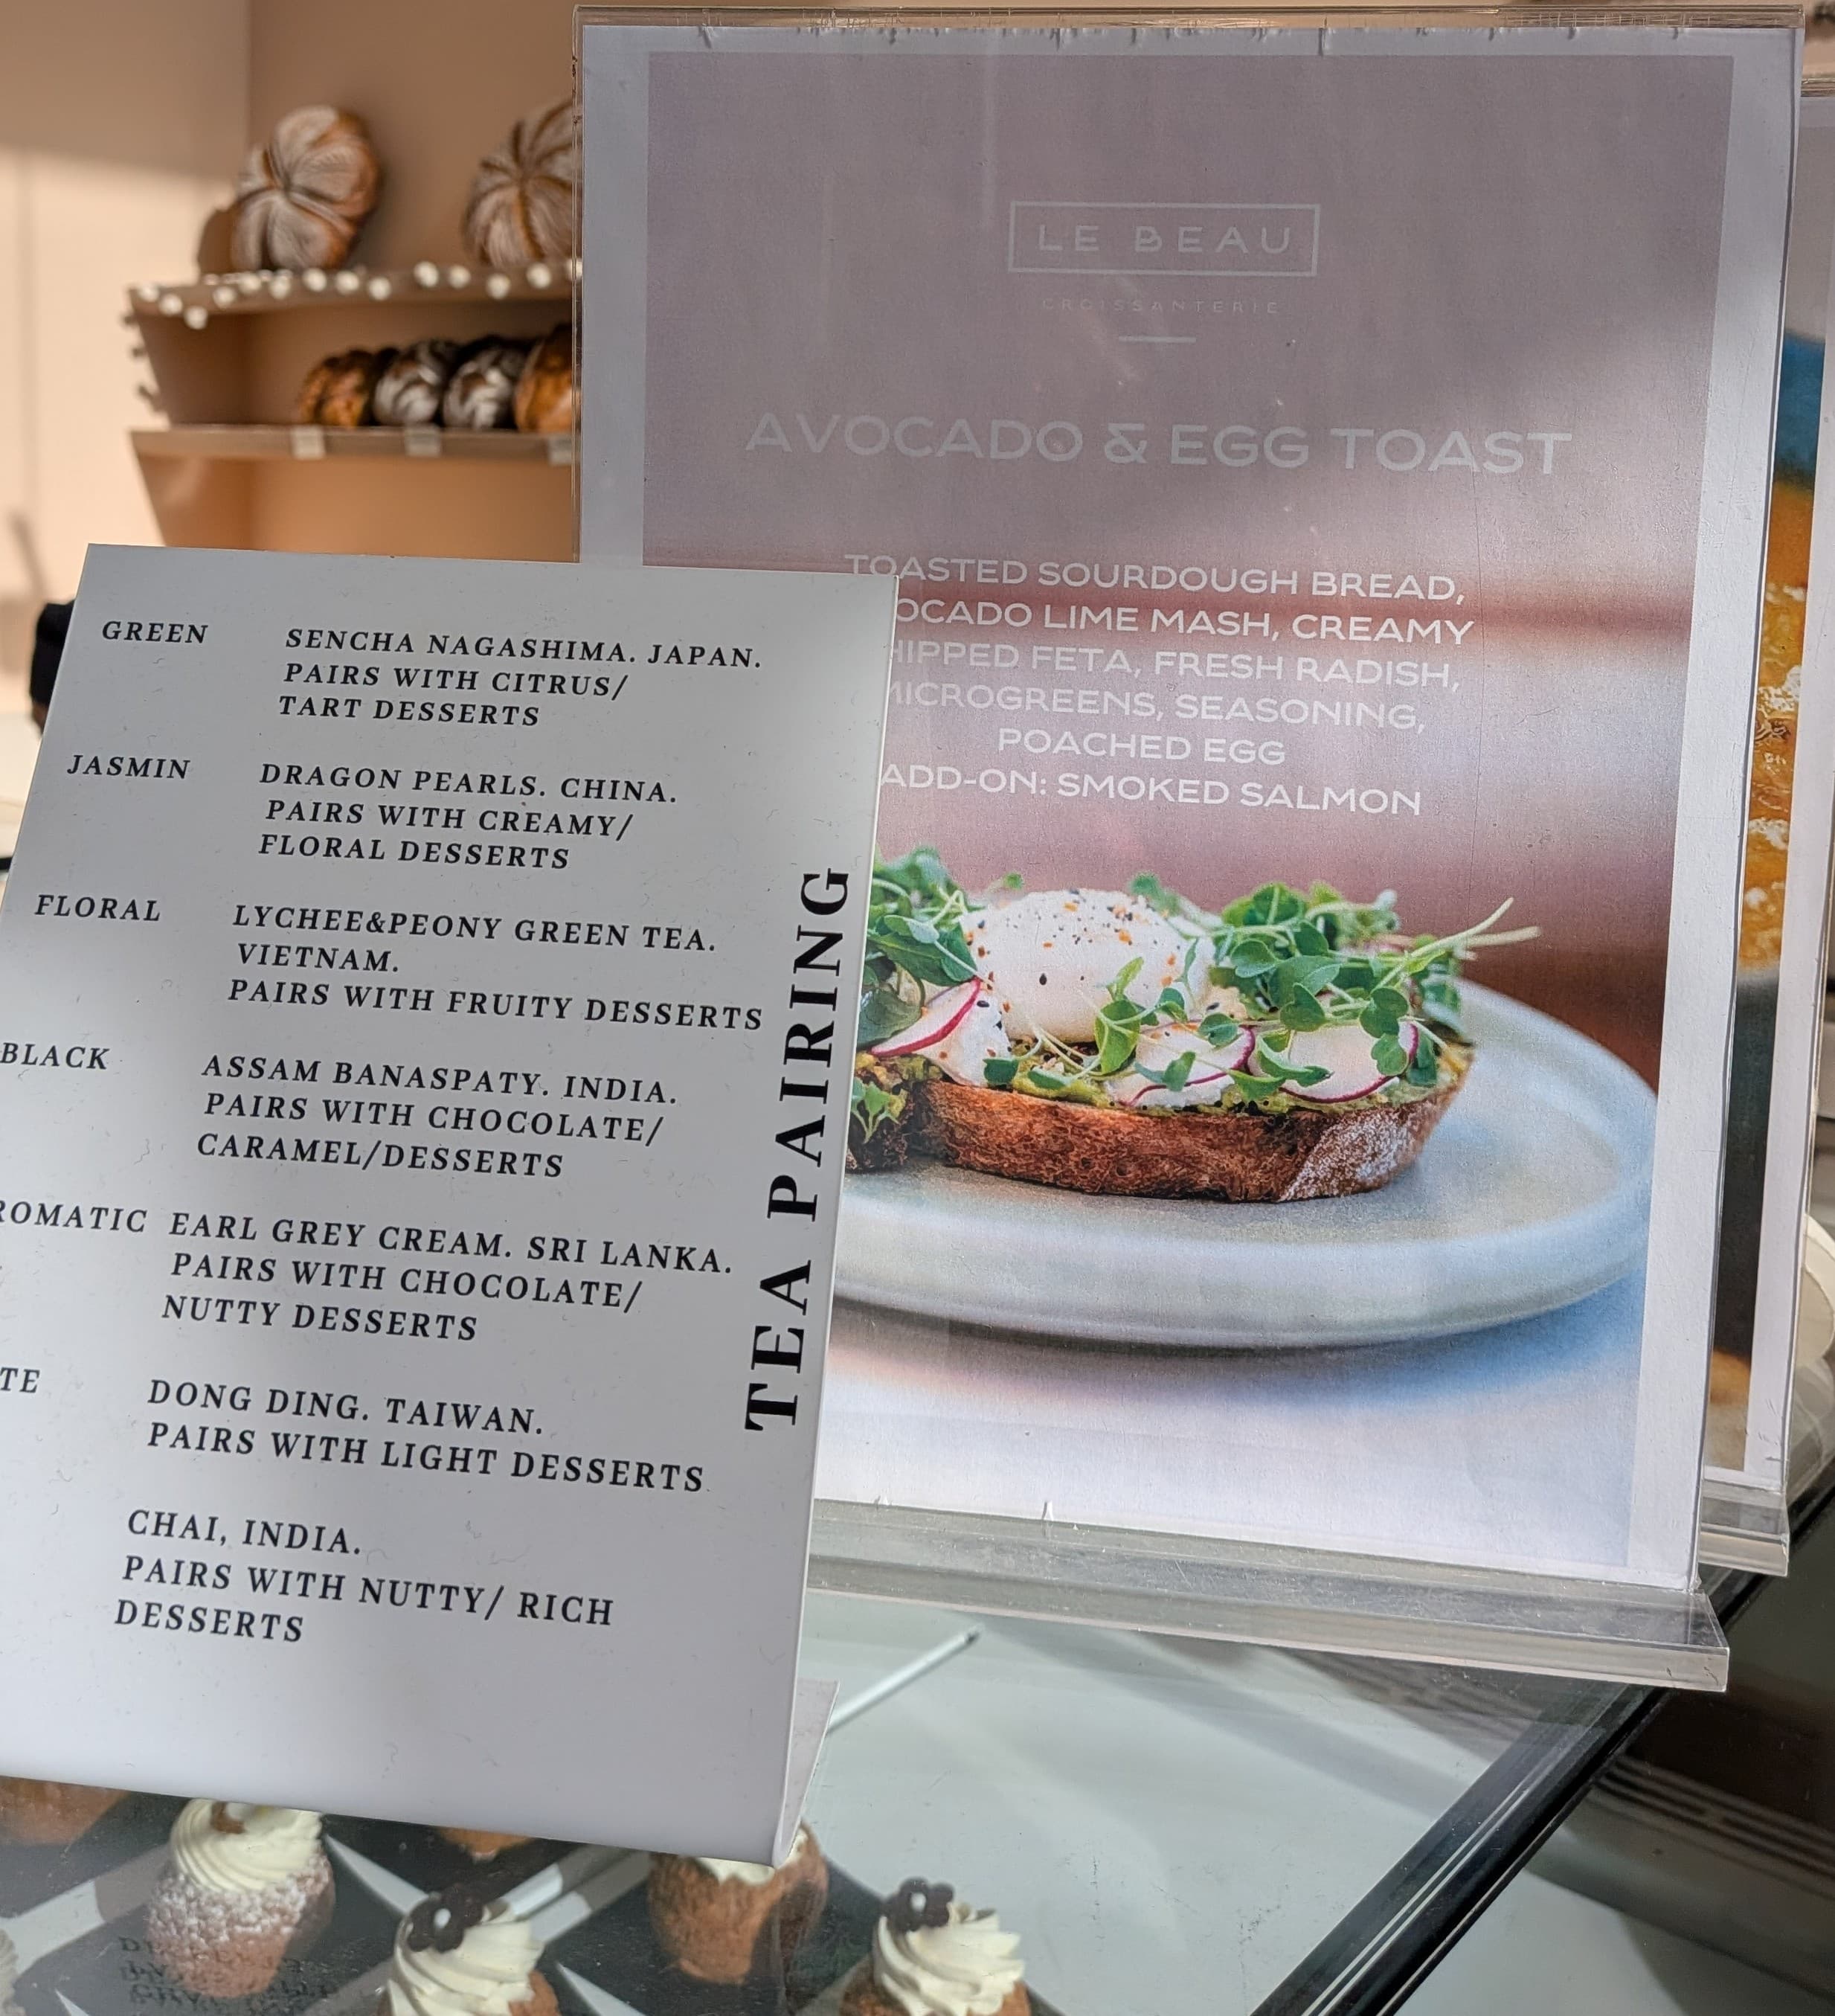 GREEN
SENCHA NAGASHIMA. JAPAN.
PAIRS WITH CITRUS/
TART DESSERTS
JASMIN
DRAGON PEARLS. CHINA.
PAIRS WITH CREAMY/
FLORAL DESSERTS
FLORAL
LYCHEE&PEONY GREEN TEA.
VIETNAM.
PAIRS WITH FRUITY DESSERTS
BLACK
ASSAM BANASPATY. INDIA.
PAIRS WITH CHOCOLATE/
CARAMEL/DESSERTS
ROMATIC
EARL GREY CREAM. SRI LANKA.
PAIRS WITH CHOCOLATE/
NUTTY DESSERTS
TE
DONG DING. TAIWAN.
PAIRS WITH LIGHT DESSERTS
CHAI, INDIA.
PAIRS WITH NUTTY/ RICH
DESSERTS
TEA PAIRING
LE BEAU
CROISSANTERIE
AVOCADO & EGG TOAST
TOASTED SOURDOUGH BREAD,
OCADO LIME MASH, CREAMY
HIPPED FETA, FRESH RADISH,
MICROGREENS, SEASONING,
POACHED EGG
ADD-ON: SMOKED SALMON